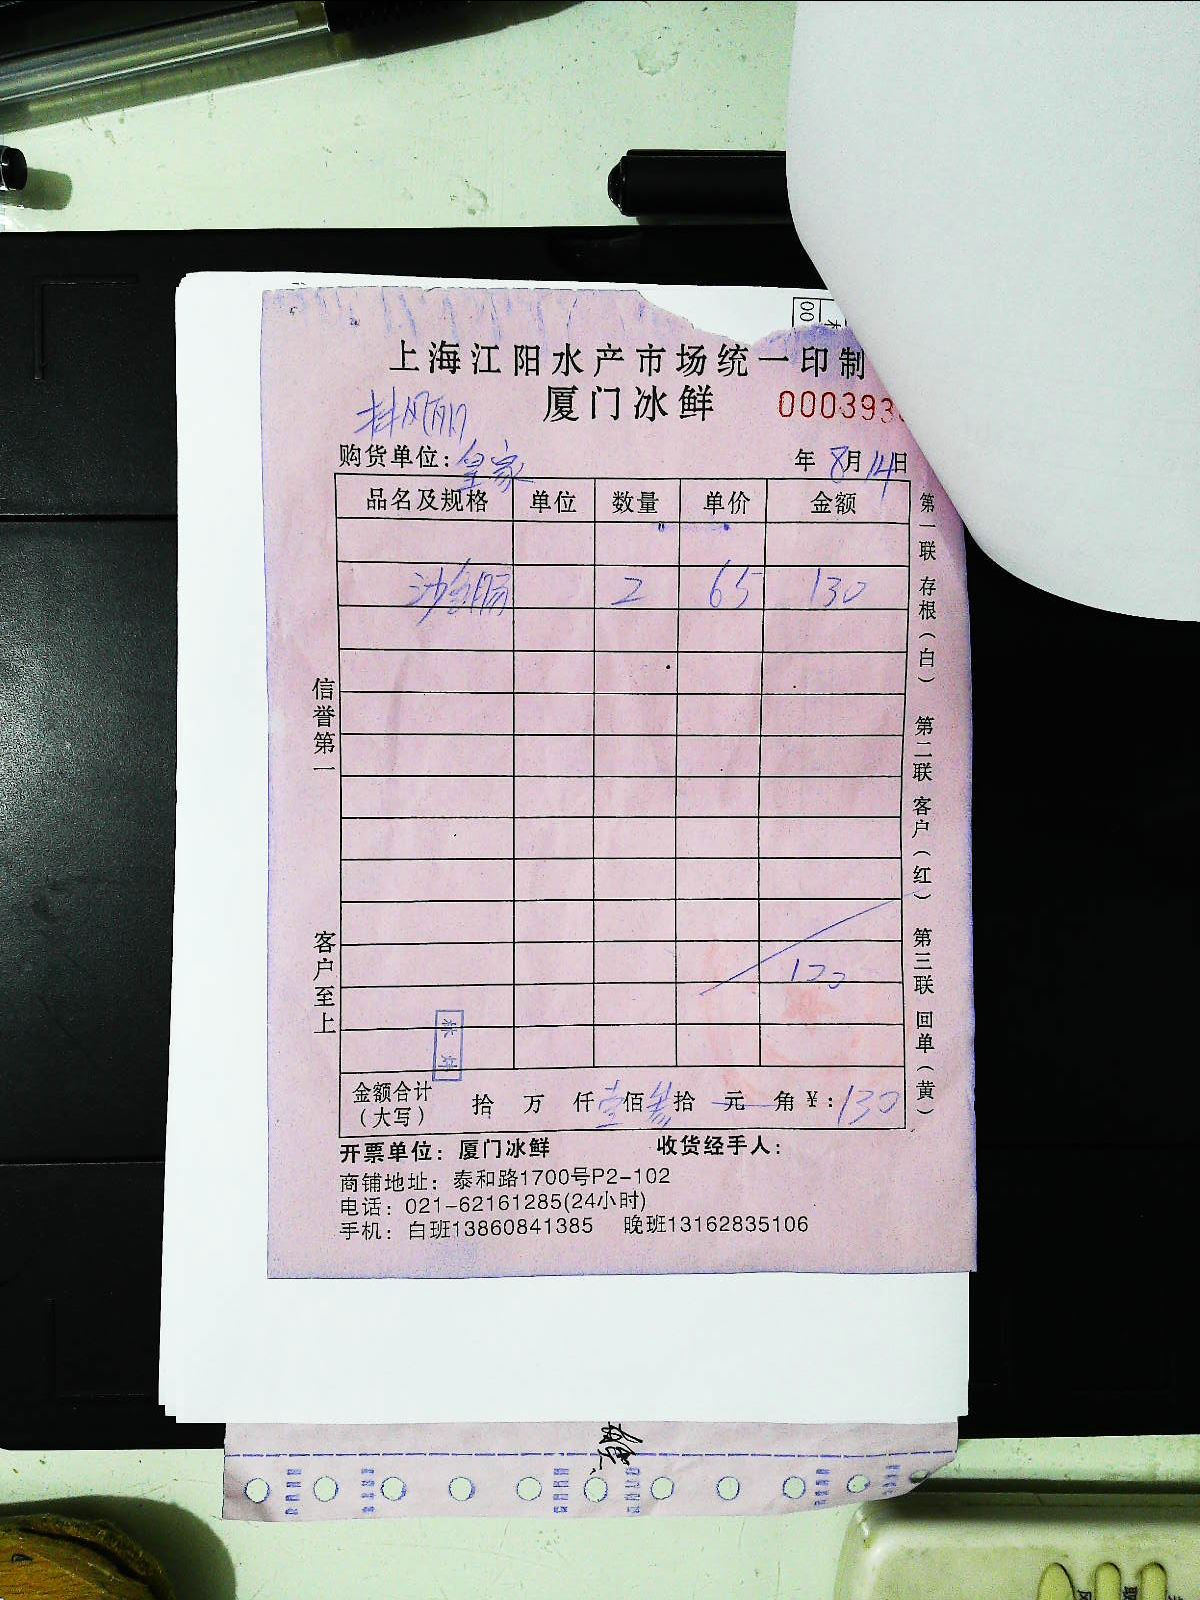 上海江阳水产市场统一印制
厦门冰鲜
000393
购货单位：皇家
年 8月14日
品名及规格 单位 数量 单价 金额
沙鱼肠 2 65 130
130
金额合计（大写） 拾 万 仟壹佰叁拾 元 角 ¥：130
开票单位：厦门冰鲜 收货经手人：
商铺地址：泰和路1700号P2-102
电话：021-62161285(24小时)
手机：白班13860841385 晚班13162835106
信誉第一
客户至上
第一联 存根（白）
第二联 客户（红）
第三联 回单（黄）
00